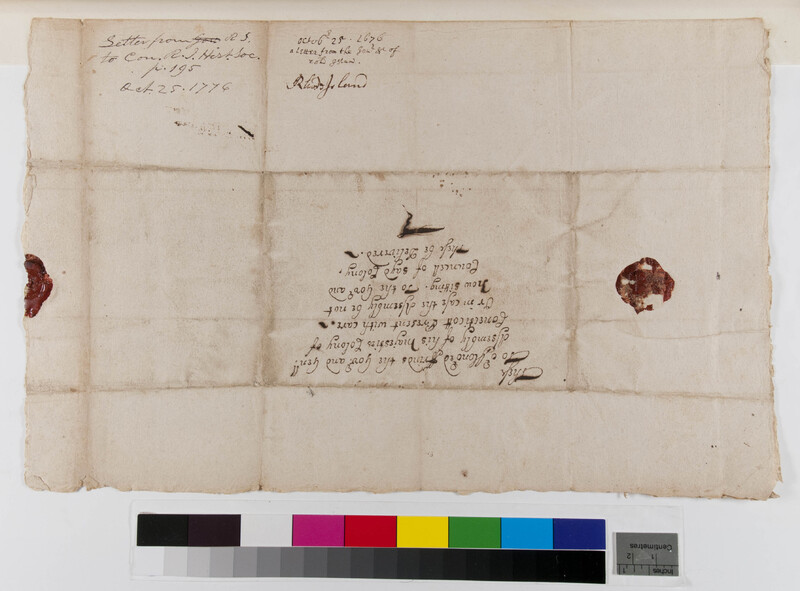 Letter from Gov R I.
to Con. R. I. Hist. Soc.
p. 195
Oct. 25. 1776
octobr 25. 1676
a letter from the Genll &c of
Rhode Island
These
To ye Honored ffrinds the Govr and Genll
Assembly of his majesties Colony of
Conecticott Present with care.
Or in case the Assembly be not
now sitting. To the Govr and
Councell of sayd Colony.
These be Delivered.
Centimetres
Inches